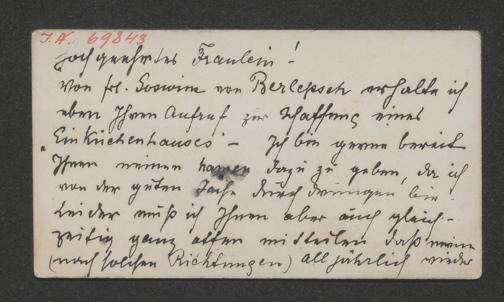 J.N. 69843
Hochgeehrtes Fräulein!
Von Frl. Goswina von Berlepsch erhalte ich
eben Ihren Aufruf zur Schaffung eines
"Einküchenhauses" – Ich bin gerne bereit
Ihnen meinen Namen dazu zu geben, da ich
von der guten Sache durchdrungen bin.
Leider muß ich Ihnen aber auch gleich-
zeitig ganz offen mitteilen daß meine
(nach solchen Richtungen) alljährlich wieder